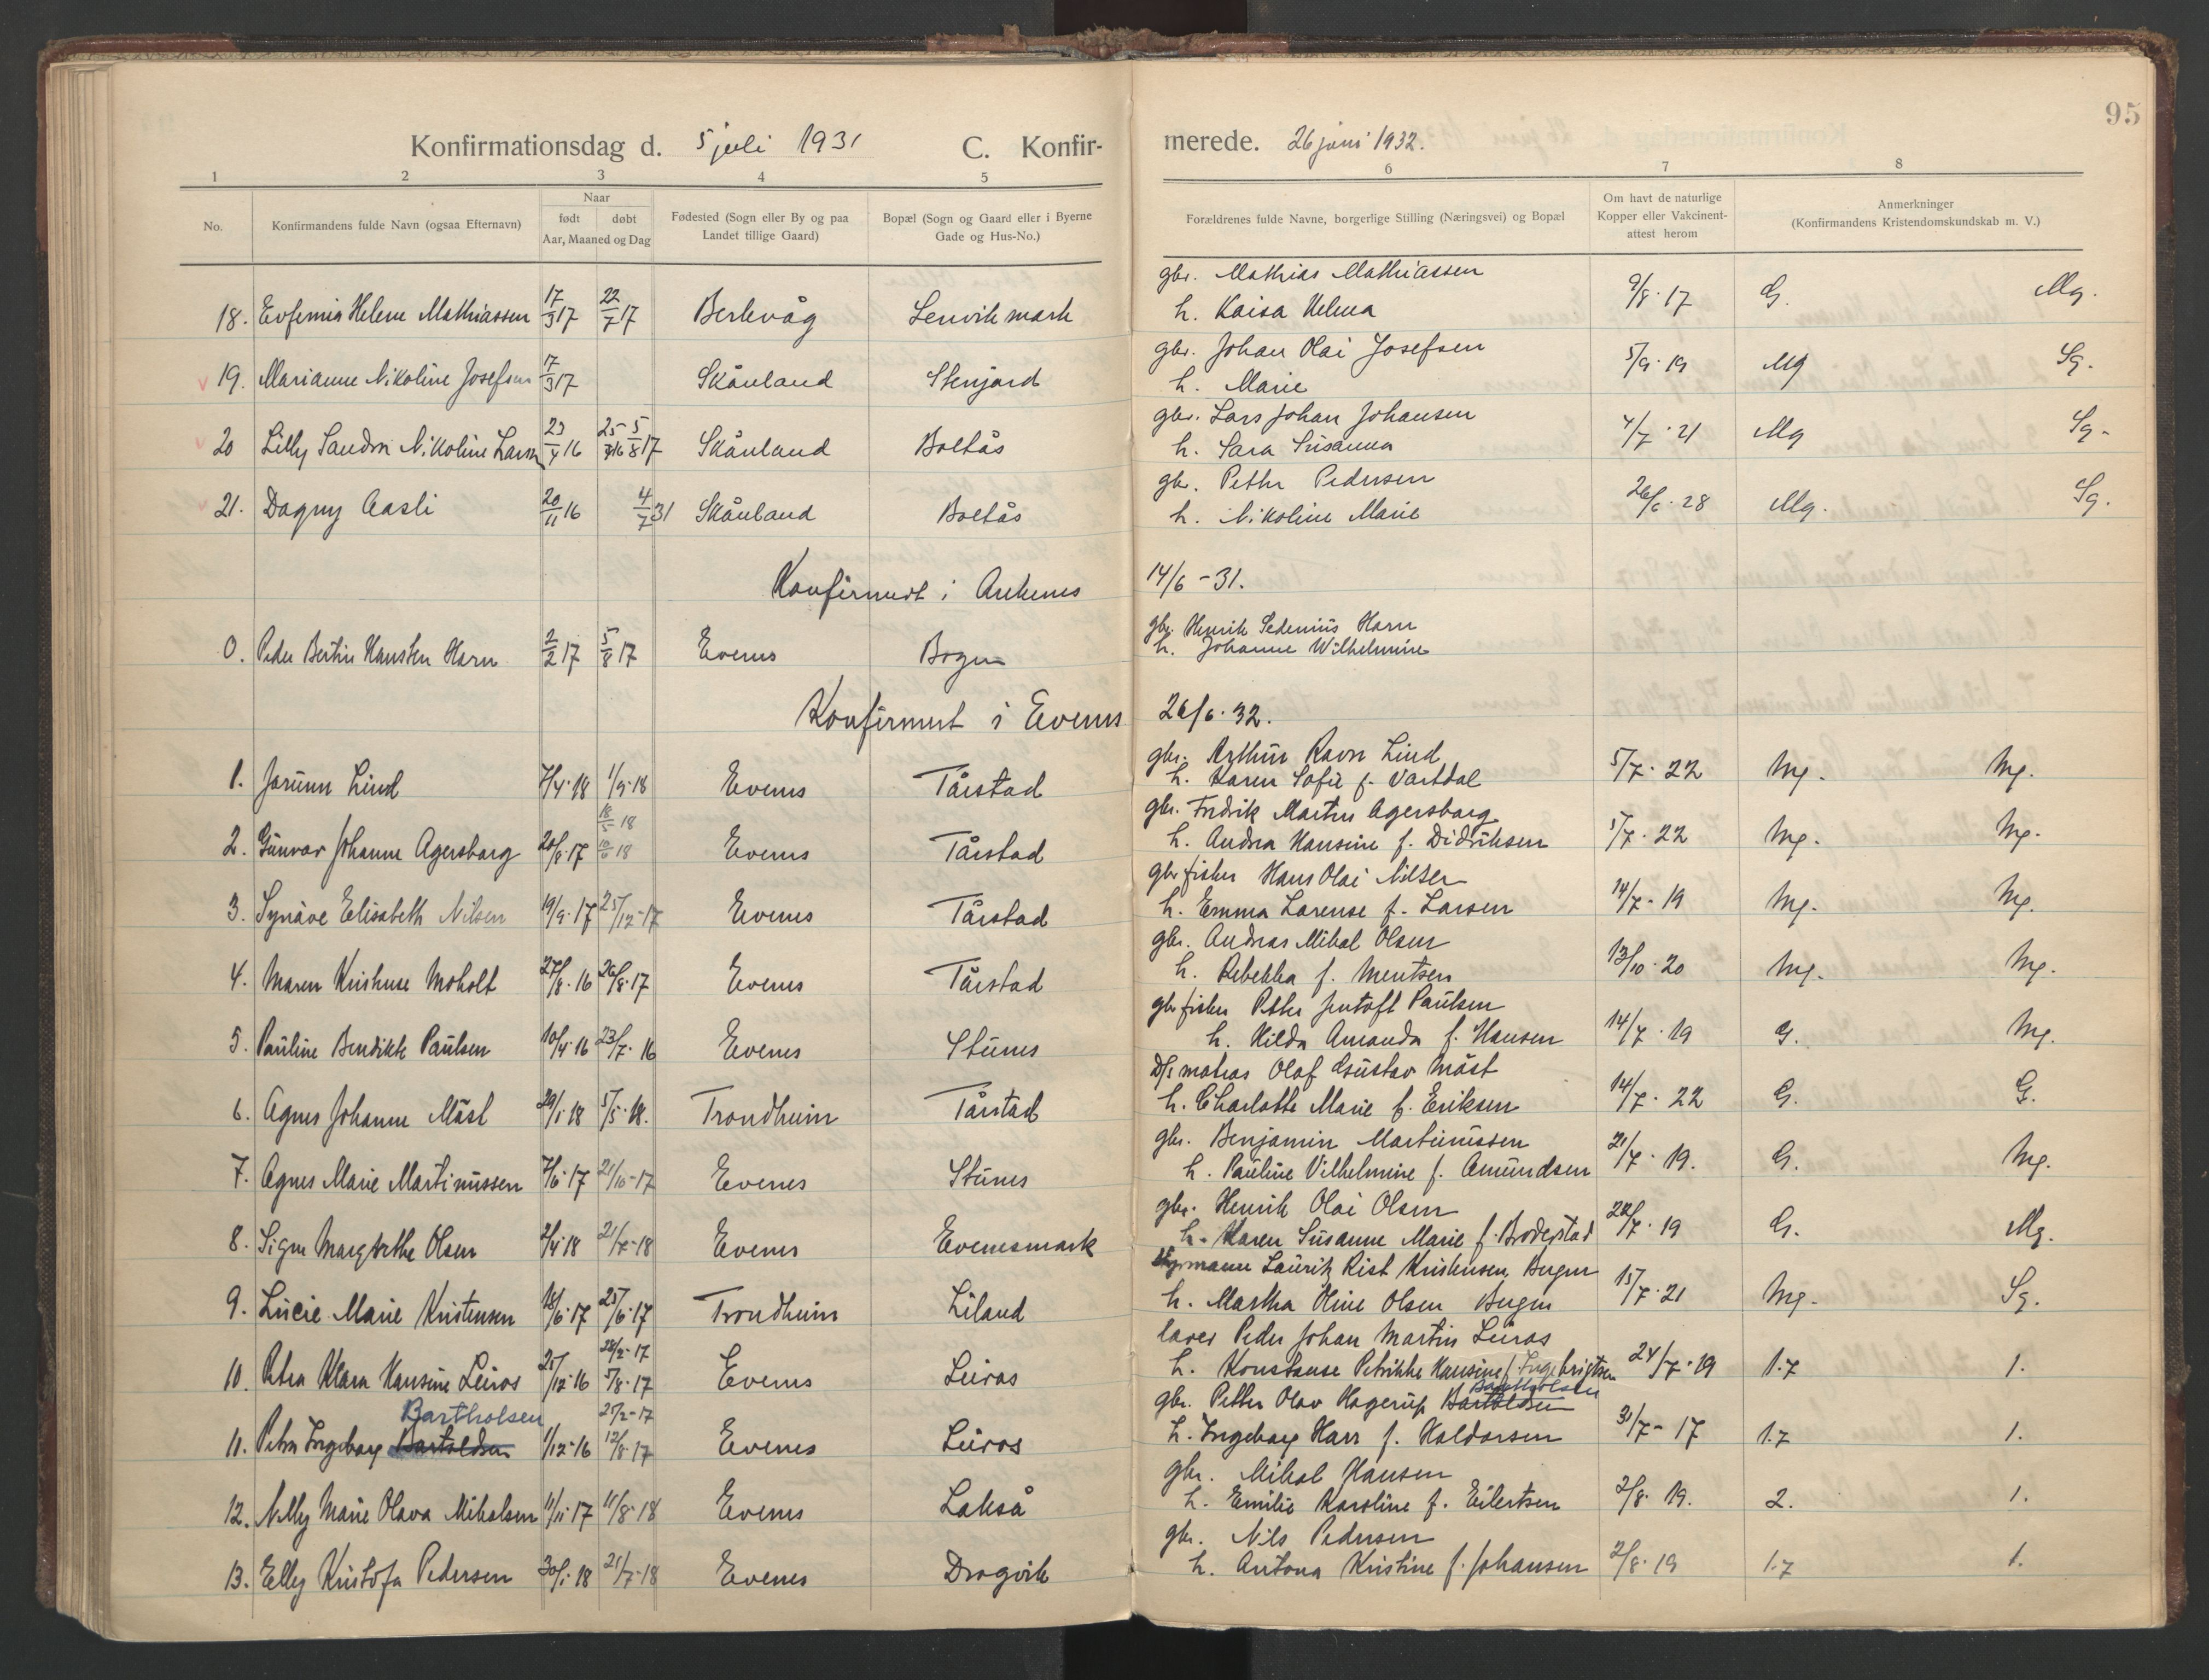 95
Konfirmationsdag d. 5 juli 1931 C. Konfir-
merede. 26 juni 1932.
1 2 3 4 5
6 7 8
No.
Konfirmandens fulde Navn (ogsaa Efternavn)
Naar
født døbt
Aar, Maaned og Dag
Fødested (Sogn eller By og paa
Landet tillige Gaard)
Bopæl (Sogn og Gaard eller i Byerne
Gade og Hus-No.)
Forældrenes fulde Navne, borgerlige Stilling (Næringsvei) og Bopæl
Om havt de naturlige
Kopper eller Vakcinent-
attest herom
Anmerkninger
(Konfirmandens Kristendomskundskab m. V.)
gbr. Mathias Mathiassen
18. Evfemia Helene Mathiassen 17/3 17 22/7 17 Berlevåg Lenvikmark h. Kaisa Helena 9/8·17 G. Mg.
gbr. Johan Olai Josefsen
19. Marianne Nikoline Josefsen 17/3 17 Skånland Stenjord h. Marie 5/9·19 Mg Sg.
gbr. Lars Johan Johansen
20 Lilly Sandra Nikoline Larsen 23/4 16 5/8 17 Skånland Boltås h. Sara Susanna 4/7·21 Mg Sg.
gbr. Petter Pedersen
21. Dagny Aasli 20/11 16 4/7 31 Skånland Boltås h. Nikoline Marie 26/6·28 Mg. Sg.
Konfirmert i Ankenes 14/6 - 31.
gbr. Henrik Sedenius Harr
0. Peder Bertin Hansten Harr 2/2 17 5/8 17 Evenes Bogen h. Johanne Wilhelmine
Konfirmert i Evenes 26/6·32.
gbr. Arthur Ravn Lind
1. Jorunn Lind 7/4·18 1/9·18 Evenes Tårstad h. Karen Sofie f. Vartdal 5/7·22 Mg. Mg.
18/5 18
gbr. Fredrik Martin Agersborg
2. Gunvor Johanne Agersborg 20/8·17 Evenes Tårstad h. Andrea Hansine f. Didriksen 5/7·22 Mg. Mg.
gbr fisker Hans Olai Nilsen
3. Synøve Elisabeth Nilsen 19/9·17 25/12-17 Evenes Tårstad h. Emma Larense f. Larsen 14/7-19 Mg. Mg.
gbr. Andreas Mikal Olsen
4. Maren Kristense Moholt 27/8·16 26/8·17 Evenes Tårstad h. Rebekka f. Mentsen 13/10·20 Mg. Mg.
gbr fisker Petter Jentoft Paulsen
5. Pauline Bendikte Paulsen 10/4·16 23/7·16 Evenes Stunes h. Hilda Amanda f. Hansen 14/7·19 G. Mg.
D/s matros Olaf Gustav Måst
6. Agnes Johanne Måst 29/1·18 5/5·18. Trondheim Tårstad h. Charlotte Marie f. Eriksen 14/7·22 G. G.
gbr. Benjamin Martinussen
7. Agnes Marie Martinussen 7/6·17 21/10-17 Evenes Stunes h. Pauline Vilhelmine f. Amundsen 21/7·19. G. Mg.
gbr. Henrik Olai Olsen
8. Signe Margrethe Olsen 2/4·18 21/7-18 Evenes Evenesmark h. Karen Susanne Marie f. Broderstad 22/7·19 G. Mg.
Styrmann Lauritz Rist Kristensen, Bergen
9. Lucie Marie Kristensen 18/6·17 25/6·17 Trondheim Liland h. Martha Oline Olsen Bergen 15/7·21 Mg. Sg.
28/2-17
lærer Peder Johan Martin Leiros
10. Petra Klara Hansine Leiros 25/12·16 5/8·17 Evenes Leiros h. Konstanse Petrikke Hansine f. Ingebrigtsen 24/7·19 1.7 1.
Bartholsen 25/2-17
gbr. Petter Olav Hagerup Bartoldsen Bartholsen
11. Petra Ingeborg Bartoldsen 1/12-16 12/8·17 Evenes Leiros h. Ingeborg Harr f. Haldorsen 31/7-17 1.7 1.
gbr. Mikal Hansen
12. Nelly Marie Olava Mikalsen 11/11·17 11/8·18 Evenes Lakså h. Emilie Karoline f. Eilertsen 2/8·19. 2. 1.
gbr. Nils Pedersen
13. Elly Kristofa Pedersen 30/1·18 21/7-18 Evenes Dragvik h. Antona Kristine f. Johansen 2/8·19 1.7 1.